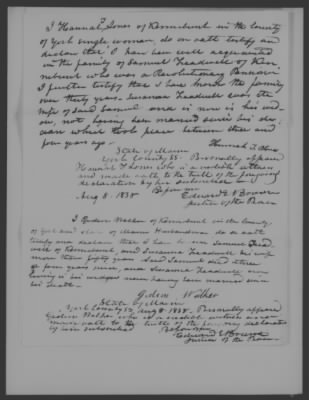 I Hannah Jones of Kennebunk in the County
of York single woman, do on oath testify and
declare that I have been well acquainted
in the family of Samuel Treadwell of Ken-
nebunk who was a Revolutionary Pensioner
I further testify that I have known the family
over thirty years. Susanna Treadwell was the
wife of said Samuel and is now is his wid-
ow, not having been married since his de-
cease which took place between three and
four years ago.
Hannah
State of Maine
York County SS. Personally appeared
Hannah who is a credible witness
and made oath to the truth of the foregoing
declaration by her subscribed
Before me
Aug 8. 1838 Edward E Bourne
Justice of the Peace
I Gideon Walker of Kennebunk in the County
of York and State of Maine Husbandman do on oath
testify and declare that I knew Samuel Tread-
well of Kennebunk, and Susanna Treadwell his wife
more than fifty years. Said Samuel died three
or four years since, and Susanna Treadwell now
living is his widow never having been married since
his death.
Gideon Walker
State of Maine
York County SS, Aug 8 1838. Personally appeared
Gideon Walker who is a credible witness and
made oath to the truth of the foregoing declaration
by him subscribed
Before me
Edward E Bourne
Justice of the Peace